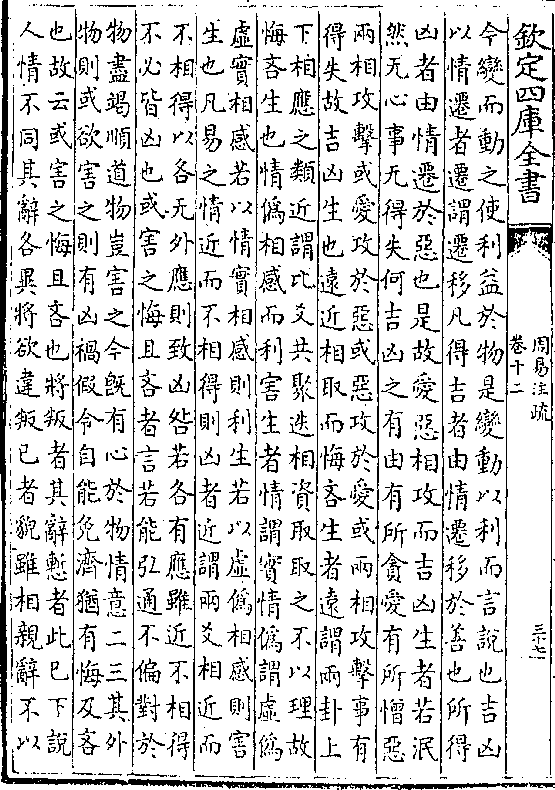 欽定四庫全書
周易注疏
卷十二
三七
今變而動之使利益於物是變動以利而言說也吉凶
以情遷者遷謂遷移凡得吉者由情遷移於善也所得
凶者由情遷於惡也是故愛惡相攻而吉凶生者若泯
然无心事无得失何吉凶之有由有所貪愛有所憎惡
兩相攻擊或愛攻於惡或惡攻於愛或兩相攻擊事有
得失故吉凶生也遠近相取而悔吝生者遠謂兩卦上
下相應之類近謂比爻共聚迭相資取取之不以理故
悔吝生也情偽相感而利害生者情謂實情偽謂虛偽
虛實相感若以情實相感則利生若以虛偽相感則害
生也凡易之情近而不相得則凶者近謂兩爻相近而
不相得以各无外應則致凶咎若各有應雖近不相得
不必皆凶也或害之悔且吝者言若能弘通不偏對於
物盡竭順道物豈害之今旣有心於物情意二三其外
物則或欲害之則有凶禍假令自能免濟猶有悔及吝
也故云或害之悔且吝也將叛者其辭慙者此已下說
人情不同其辭各異將欲違叛已者貌雖相親辭不以